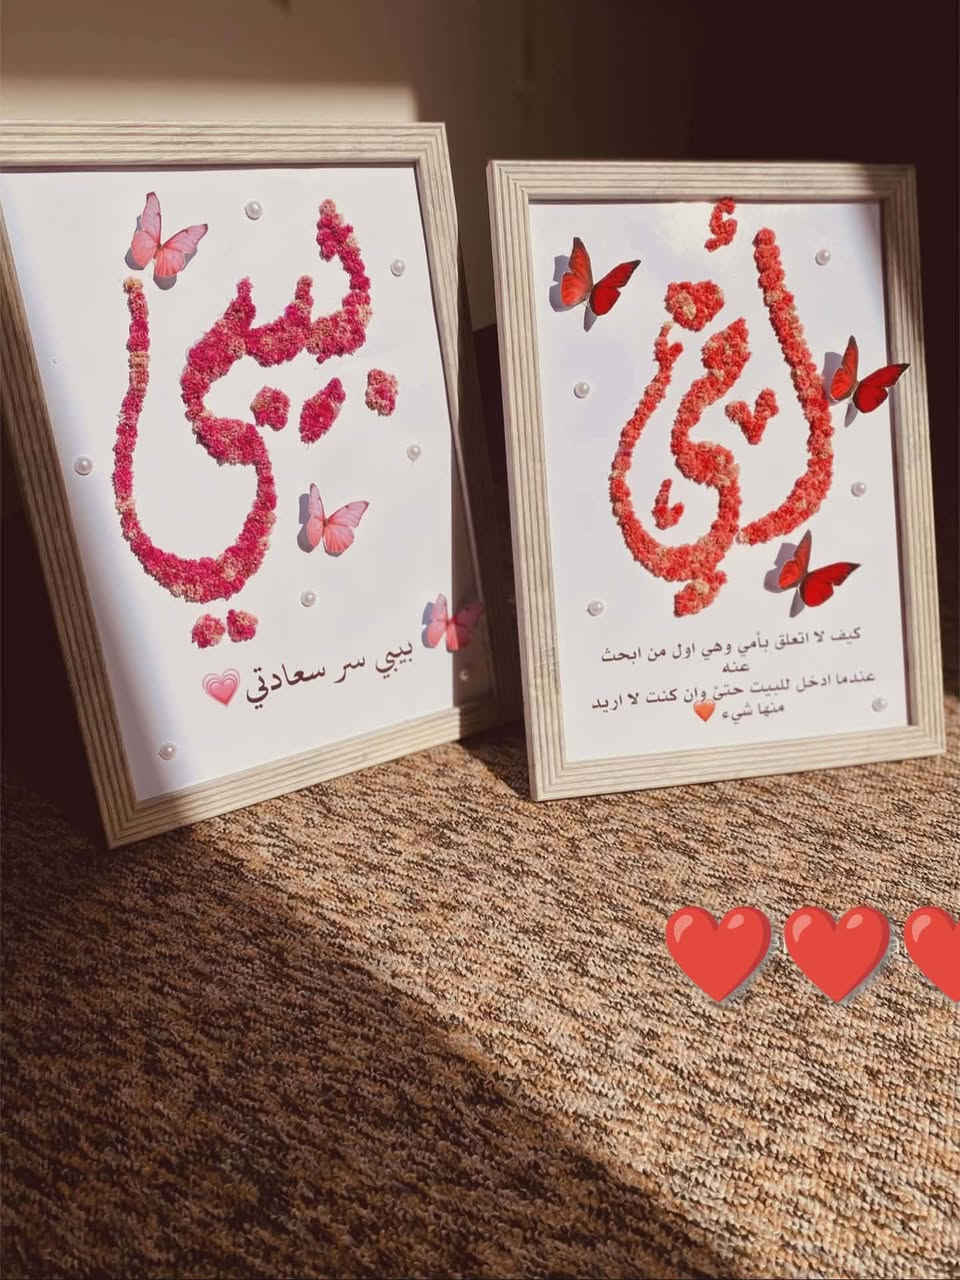 أمي
كيف لا اتعلق بأمي وهي اول من ابحث
عنه
عندما ادخل للبيت حتىّ وان كنت لا اريد
منها شيء ❤️
بيبي
بيبي سر سعادتي 💗